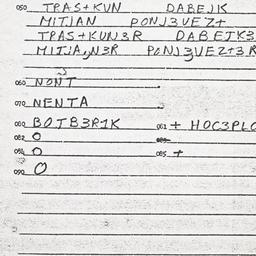 050 TRAS+KUN DABEJK
MITJAN PONJ3VEZ+
TRAS+KUN3R DABEJK3
MITJA,N3R PONJ3VEZ+3R
060 NONT
070 NENTA
080 BOTB3R1K 081 + HOC3PLO
082 O 083
084 O 085 +
090 O